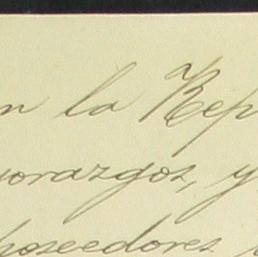 n la Rep
yorazgos, y
poseedores